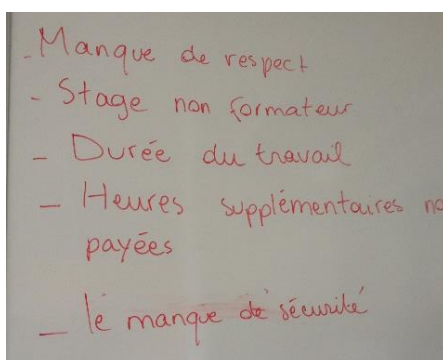 - Manque de respect
- Stage non formateur
- Durée du travail
- Heures supplémentaires no
payées
- le manque de sécurité